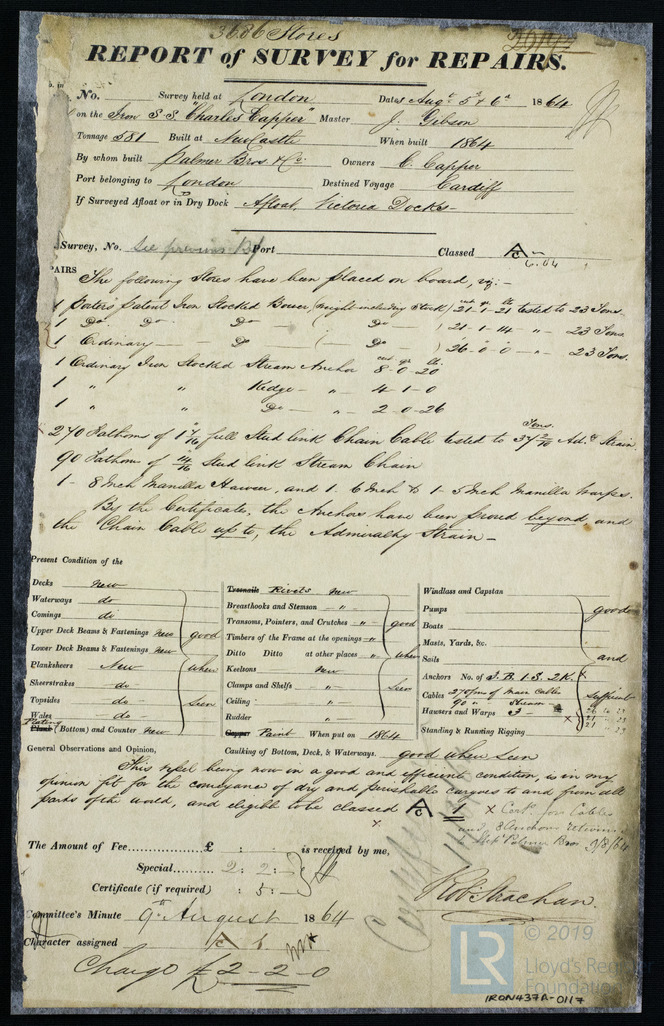 3686 Stores
REPORT of SURVEY for REPAIRS.
No. Survey held at London Date, Augt 5th & 6th 1864
on the Iron S.S. "Charles Capper" Master J. Gibson
Tonnage 881 Built at NewCastle When built 1864
By whom built Palmer Bros. & Co. Owners C. Capper
Port belonging to London Destined Voyage Cardiff
If Surveyed Afloat or in Dry Dock Afloat, Victoria Docks
Survey, No. See previous Port Classed A
PAIRS
The following Stores have been placed on board, viz:-
1 Porter's Patent Iron Stocked Bower (weight including Stock) 21-1-21 tested to 23 Tons.
1 Do Do Do ( Do ) 21-1-14 " 23 Tons
1 Ordinary Do ( Do ) 26-0-0 " 23 Tons.
1 Ordinary Iron Stocked Stream Anchor 8-0-20
1 " " Kedge " 4-1-0
1 " " Do " 2-0-26
270 Fathoms of 1 7/16 full Stud link Chain Cable tested to 37 2/10 Tons Ady Strain.
90 Fathom of 14/16 Stud link Stream Chain
1- 8 Inch Manilla Hawser, and 1. 6 Inch & 1-5 Inch Manilla warps.
By the Certificate, the Anchors have been proved beyond and
the Chain Cable up to, the Admiralty Strain-
Present Condition of the
Decks new
Waterways do
Comings do
Upper Deck Beams & Fastenings new
Lower Deck Beams & Fastenings new
Planksheers New
Sheerstrakes do
Topsides do
Wales do
Plating
Plank (Bottom) and Counter new
good
when
Seen
Treenails Rivets new
Breasthooks and Stemson "
Transoms, Pointers, and Crutches "
Timbers of the Frame at the openings "
Ditto Ditto at other places "
Keelsons new
Clamps and Shelfs "
Ceiling "
Rudder "
Copper Paint When put on 1864
good
when
Seen
Windlass and Capstan
Pumps
Boats
Masts, Yards, &c.
Sails
Anchors No. of 3. B. 1. S. 2 K. x
Cables 270 fms of Main Cables
90 " Stream
Hausers and Warps 3
Standing & Running Rigging
good
and
Sufficient
General Observations and Opinion, Caulking of Bottom, Deck, & Waterways. good when seen
This vessel being now in a good and efficient condition, is in my
opinion fit for the conveyance of dry and perishable cargoes to and from all
parts of the world, and eligible to be classed A 1
x Cert. for Cables
and Anchors
Palmer Bros. 9/8/64
The Amount of Fee £ : : is received by me,
Special 2 : 2 :
Certificate (if required) : 5 :
Robt Strachan.
Committee's Minute 9th August 1864
Character assigned A 1
Charge £2-2-0
LR
© 2019
Lloyd's Register
Foundation
IRON437A-0117